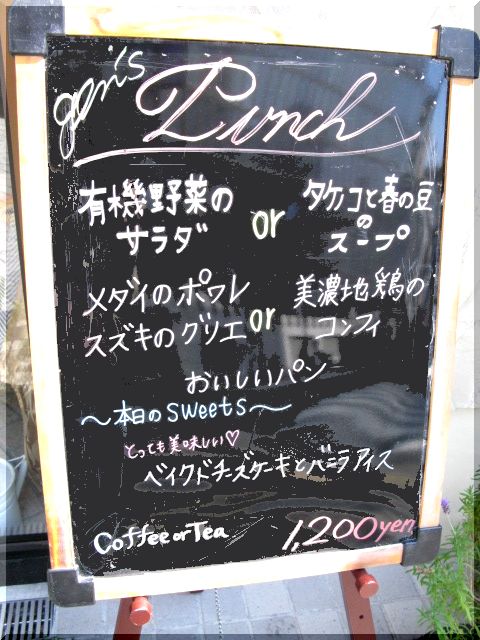 gen's Lunch
有機野菜の
サラダ
or
タケノコと春の豆
の
スープ
メダイのポワレ
スズキのグリエ
or
美濃地鶏の
コンフィ
おいしいパン
～本日のsweets～
とっても美味しい♡
ベイクドチーズケーキとバニラアイス
Coffee or Tea
1,200yen